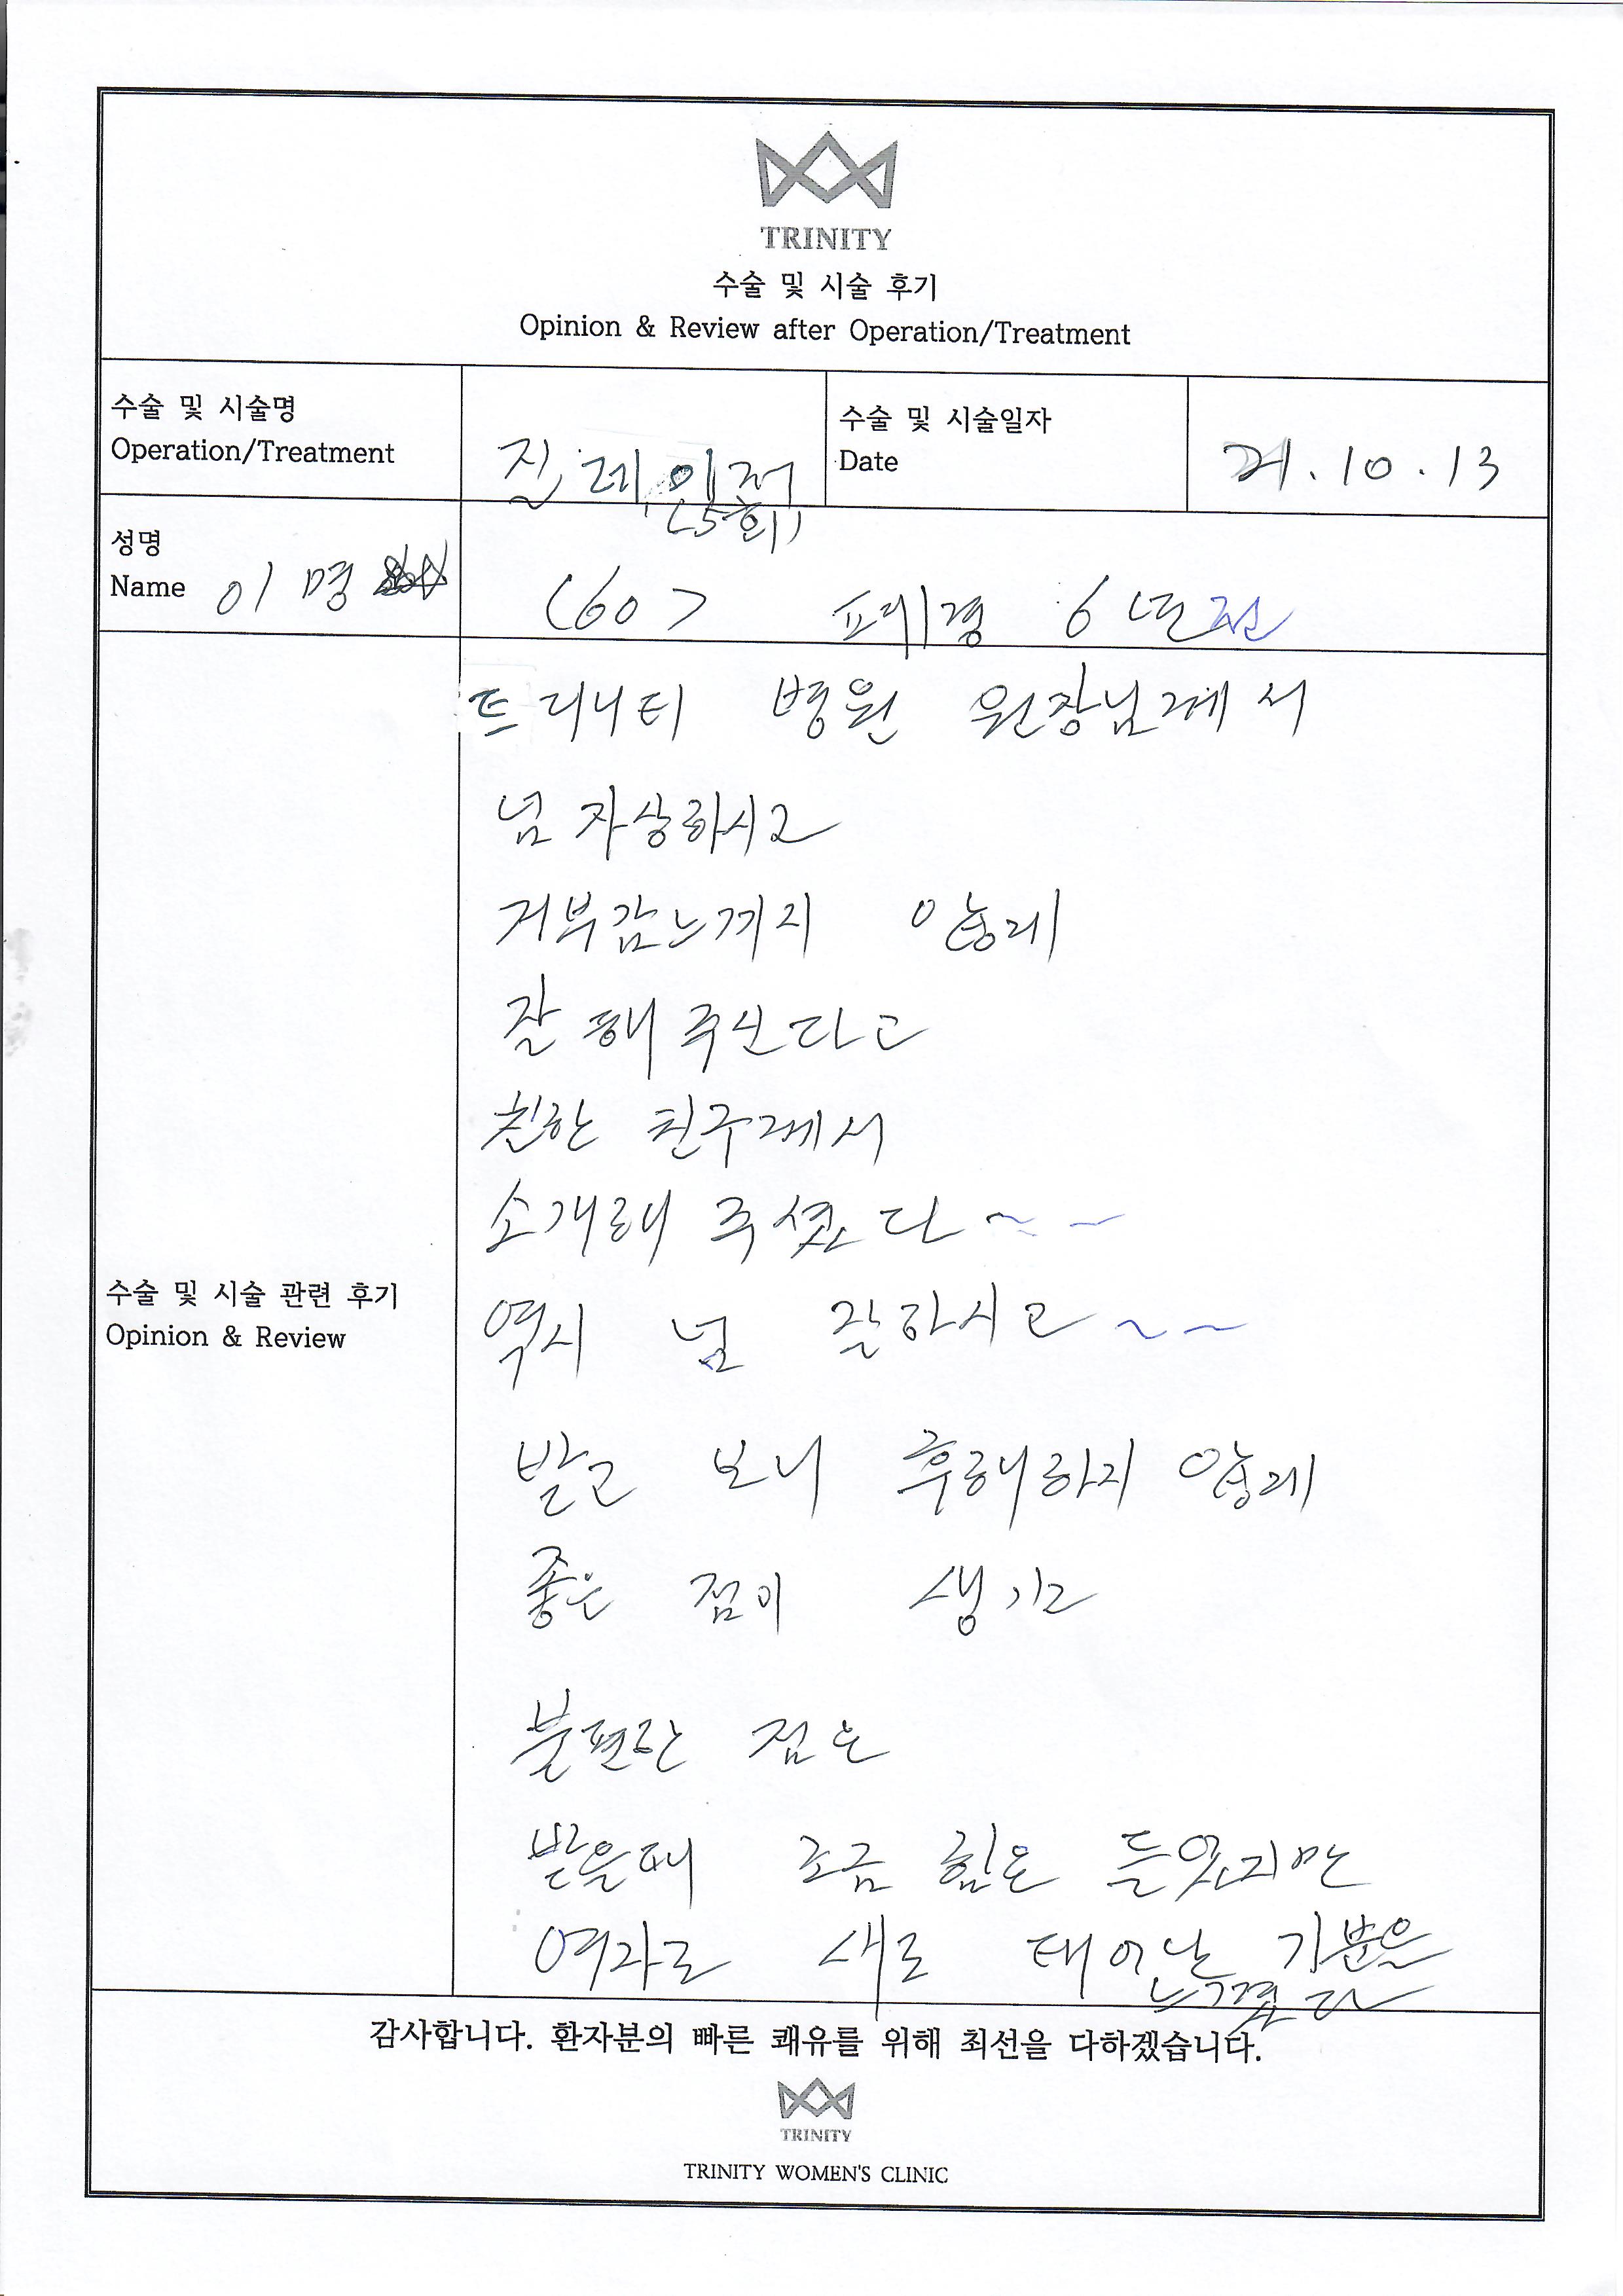 TRINITY
수술 및 시술 후기
Opinion & Review after Operation/Treatment
수술 및 시술명
Operation/Treatment
질레이저
(5회)
수술 및 시술일자
Date
21.10.13
성명
Name 이명
(60) 폐경 6년전
수술 및 시술 관련 후기
Opinion & Review
트리니티 병원 원장님께서
넘 자상하시고
거부감느끼지 않게
잘 해 주신다고
친한 친구께서
소개해 주셨다~~
역시 넘 잘하시고~~
받고 보니 후해하지 않게
좋은 점이 생기고
불편한 점은
받을때 조금 힘은 들었지만
여자로 새로 태어난 기분을
느꼈다
감사합니다. 환자분의 빠른 쾌유를 위해 최선을 다하겠습니다.
TRINITY
TRINITY WOMEN'S CLINIC